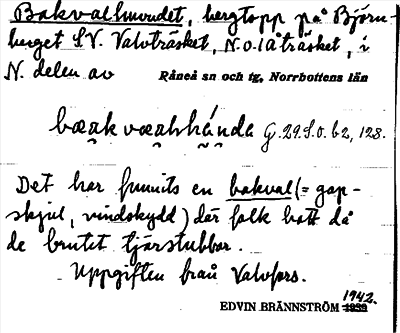 Bakvalhuvudet, bergtopp på Björn-
berget S.V. Valvträsket, N.o.låträsket, i
N. delen av Råneå sn och tg, Norrbottens län
G. 29. S.0. 62, 128.
Det har funnits en bakval (= gap-
skjul, vindskydd) där folk hatt då
de brutet tjärstubbar.
Uppgiften från Valvfors.
1942.
EDVIN BRÄNNSTRÖM 1939